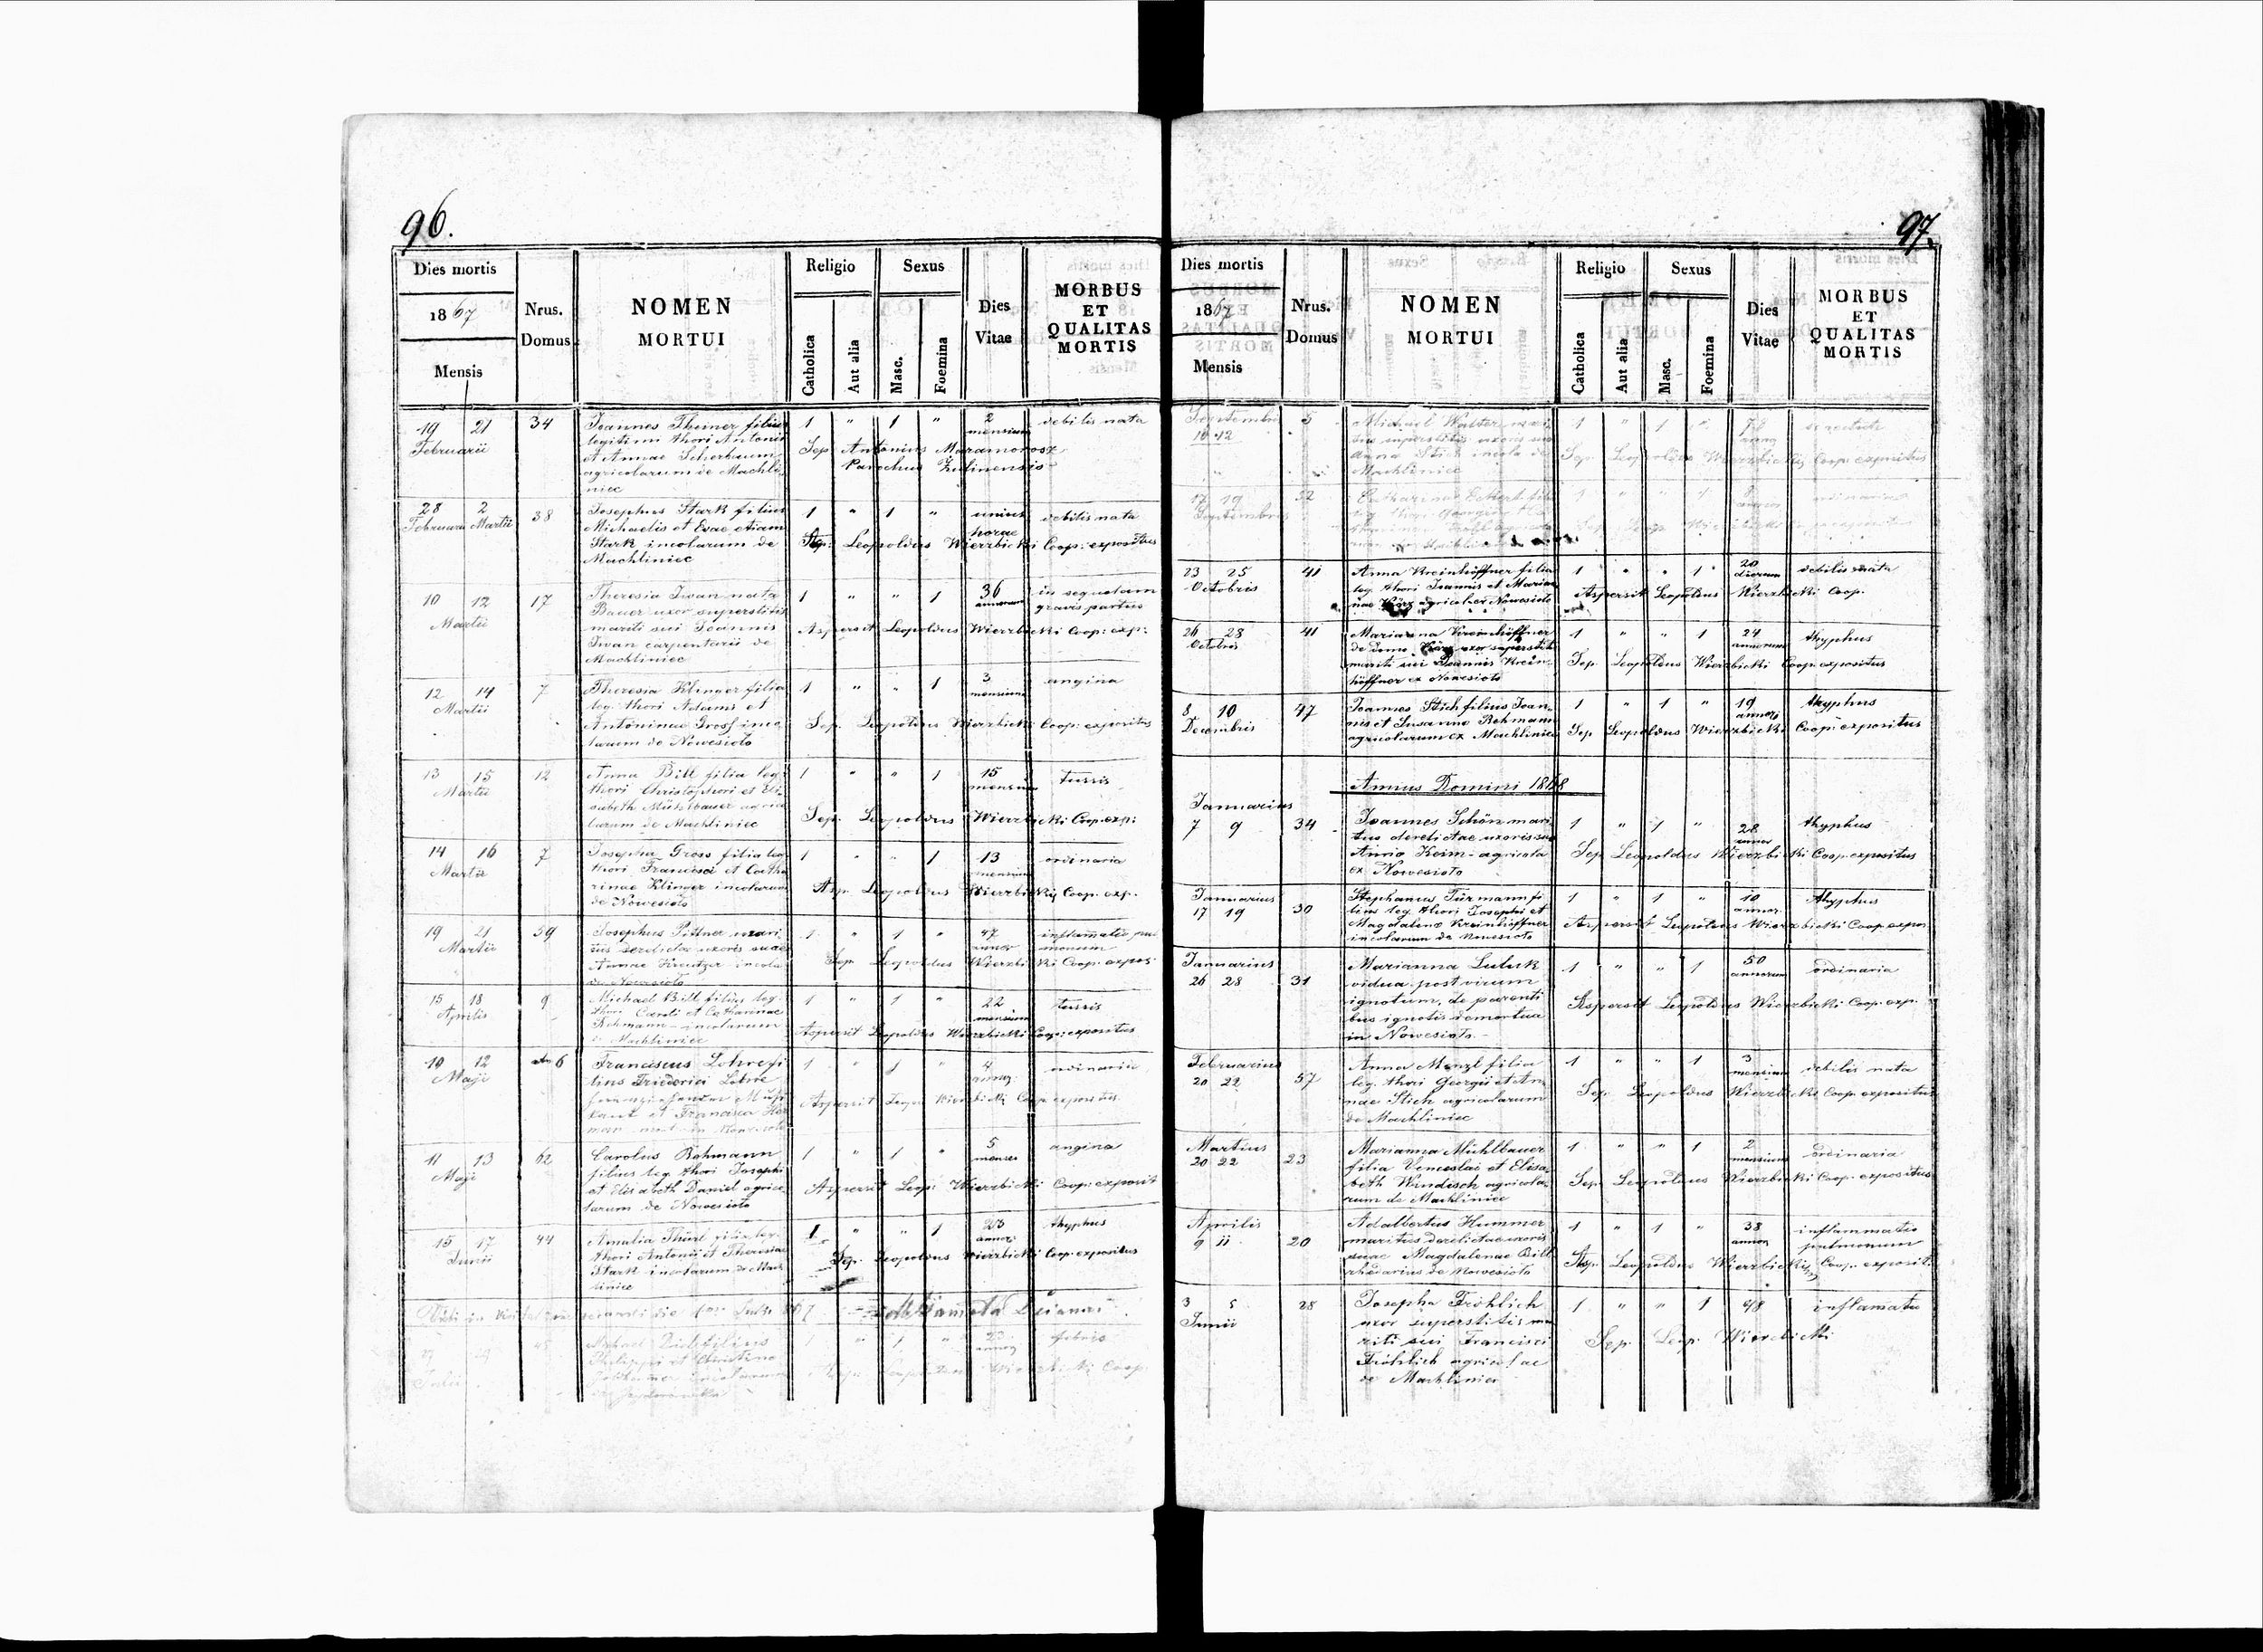 96.
Dies mortis
1867
Mensis
Nrus.
Domus
NOMEN
MORTUI
Religio
Catholica
Aut alia
Sexus
Masc.
Foemina
Dies
Vitae
MORBUS
ET
QUALITAS
MORTIS
19 21 34 Joannes Theiner filius 1 " 1 " 2 debilis nata
Februarii legitimi thori Antonii mensium
et Annae Scherbaum Sep. Antonius Maramorosz
agricolarum de Machli- Parochus Żulinensis
niec
28 2 38 Josephus Stark filius 1 " 1 " unius debilis nata
Februarii Martii Michaelis et Evae etiam horae
Stark incolarum de Sep: Leopoldus Wierzbicki Coop: expositus
Machliniec
10 12 17 Theresia Iwan nata 1 " " 1 36 in sequelam
Martii Bauer uxor superstitis annorum gravis partus
mariti sui Joannis Aspersit Leopoldus Wierzbicki Coop: exp:
Iwan carpentarii de
Machliniec
12 14 7 Theresia Klinger filia 1 " " 1 3 angina
Martii leg: thori Adami et mensium
Antoninae Gross inco- Sep. Leopoldus Wierzbicki Coop: expositus
larum de Nowesioło
13 15 12 Anna Bill filia leg: 1 " " 1 15 tussis
Martii thori Christophori et Eli- mensium
sabeth Mühlbauer agrico Sep. Leopoldus Wierzbicki Coop. exp:
larum de Machliniec
14 16 7 Josepha Gross filia leg. 1 " " 1 13 ordinaria
Martii thori Francisci et Catha mensium
rinae Klinger incolarum Asp. Leopoldus Wierzbicki Coop. exp.
de Nowesioło
19 21 59 Josephus Pittner mari 1 " 1 " 47 inflamatio pul
Martii tus derelictae uxoris suae annor monum
Annae Kreutzer incola Sep. Leopoldus Wierzbicki Coop. expos:
de Nowesioło
15 18 9 Michael Bill filius leg. 1 " 1 " 22 tussis
Aprilis thori Caroli et Catharinae mensium
Rehmann incolarum Aspersit Leopoldus Wierzbicki Coop: expositus
de Machliniec
10 12 6 Franciscus Lohre fi 1 " 1 " 4 ordinaria
Maji lius Friederici Lohre annor.
et Francisca Aspersit Wierzbicki Coop expositus
11 13 62 Carolus Rehmann 1 " 1 " 5 angina
Maji filius leg. thori Josephi menses
et Elisabeth Daniel agrico Aspersit Leop: Wierzbicki Coop: exposit
larum de Nowesioło
15 17 44 Amalia Thürl filia leg. 1 " " 1 23 thyphus
Junii thori Antonii et Theresiae annor.
Stark incolarum de Mach Sep. Leopoldus Wierzbicki Coop. expositus
liniec
Julii Michael filius " 1 " febris
Philippi et Christina Wierzbicki Coop.
97.
Dies mortis
1867
Mensis
Nrus.
Domus
NOMEN
MORTUI
Religio
Catholica
Aut alia
Sexus
Masc.
Foemina
Dies
Vitae
MORBUS
ET
QUALITAS
MORTIS
Septembr 5 Michael Walter mari 1 " 1 "
10 12 tus superstitis uxoris suae
Anna Stich incola de Sep. Leopoldus Wierzbicki Coop: expositus
Machliniec
17 19 52 Catharina Eckert fili 1 " " 1 ordinaria
Septembris leg. thori Georgii
23 25 41 Anna Kreinhöffner filia 1 " " 1 20 debilis nata
Octobris leg. thori Joannis et Marian dierum
nae agricol. ex Nowesioło Aspersit Leopoldus Wierzbicki Coop.
26 28 41 Marianna Kreinhöffner 1 " " 1 24 thyphus
Octobris de domo uxor superstitis annorum
mariti sui Joannis Krein- Sep. Leopoldus Wierzbicki Coop. expositus
höffner ex Nowesioło
8 10 47 Joannes Stich filius Joan- 1 " 1 " 19 thyphus
Decembris nis et Susanna Rehmann annor.
agricolarum ex Machliniec Sep. Leopoldus Wierzbicki Coop: expositus
Annus Domini 1868
Januarius
7 9 34 Joannes Schön mari- 1 " 1 " 28 thyphus
tus derelictae uxoris suae annor
Anna Keim agricola Sep. Leopoldus Wierzbicki Coop. expositus
ex Nowesioło
Januarius Stephanus Türmann fi 1 " 1 " 10 thyphus
17 19 30 lius leg. thori Josephi et annor.
Magdalena Kreinhöffner Aspersit Leopoldus Wierzbicki Coop. expos
incolarum de Nowesioło
Januarius Marianna Luluk 1 " " 1 50 ordinaria
26 28 31 vidua post virum annorum
ignotum, de parenti Aspersit Leopoldus Wierzbicki Coop. exp.
bus ignotis demortua
in Nowesioło
Februarius Anna Menzl filia 1 " " 1 3 debilis nata
20 22 57 leg. thori Georgii et An- mensium
nae Stich agricolarum Sep. Leopoldus Wierzbicki Coop. expositus
de Machliniec
Martius Marianna Mühlbauer 1 " " 1 2 ordinaria
20 22 23 filia Venceslai et Elisa- mensium
beth Windisch agricola- Sep. Leopoldus Wierzbicki Coop. expositus
rum de Machliniec
Aprilis Adalbertus Hummer 1 " 1 " 38 inflammatio
9 11 20 maritus derelictae uxoris annor. pulmonum
suae Magdalenae Bill Asp. Leopoldus Wierzbicki Coop. exposit.
rhedarius de Nowesioło
3 5 28 Josepha Fröhlich 1 " " 1 48 inflamatio
Junii uxor superstitis ma
riti sui Francisci Sep. Leop. Wierzbicki
Fröhlich agricolae
de Machliniec